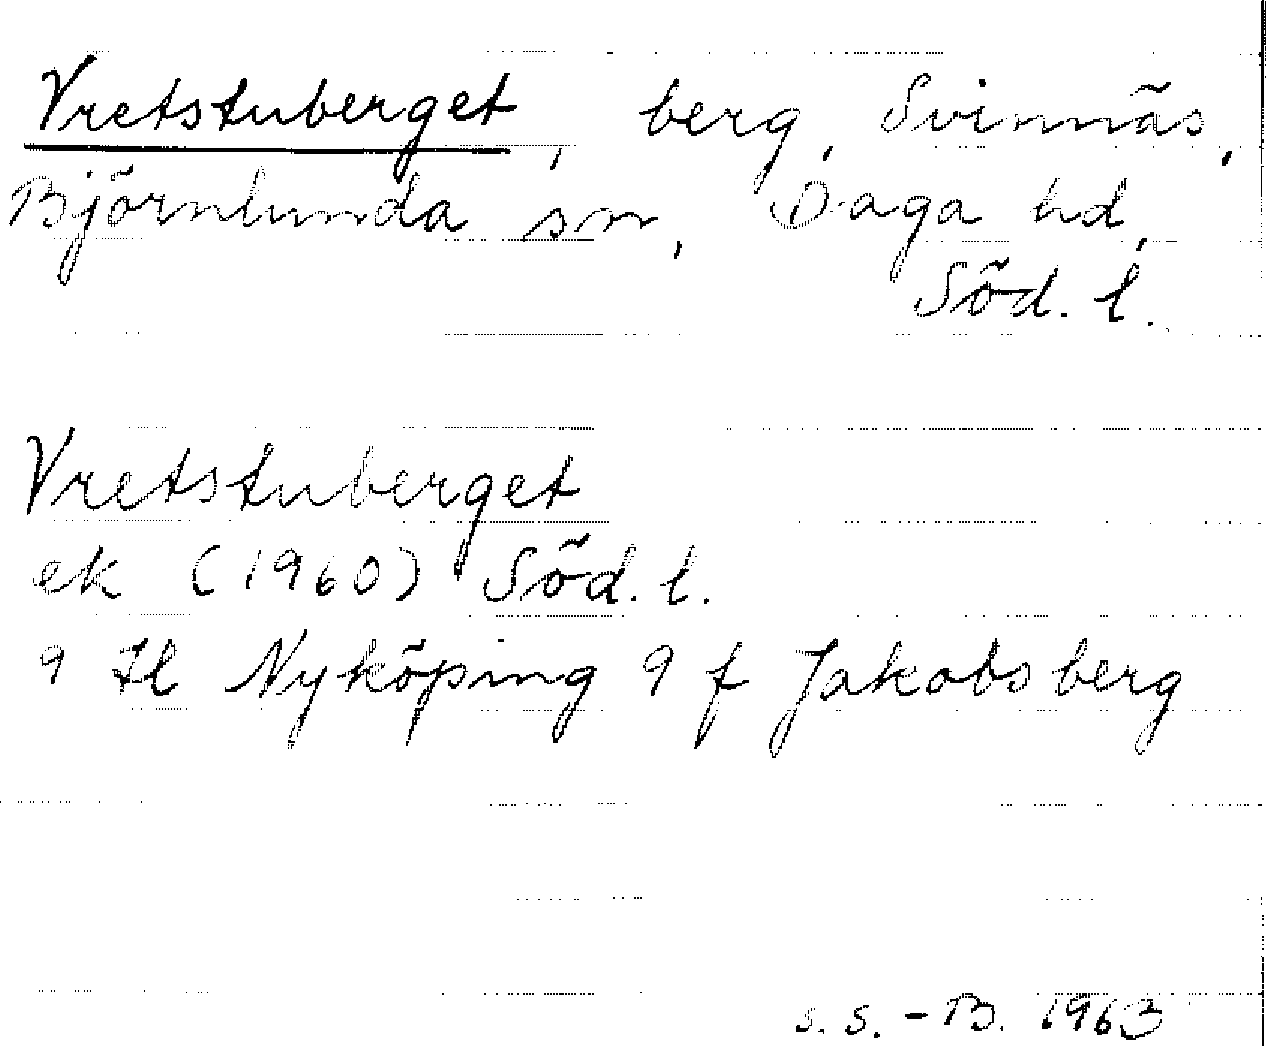 Vretstuberget, berg, Svinnäs,
Björnlunda sn, Daga hd,
Söd. l.
Vretstuberget
ek (1960) Söd. l.
9 H Nyköping 9 f Jakobsberg
S. S. - B. 1963